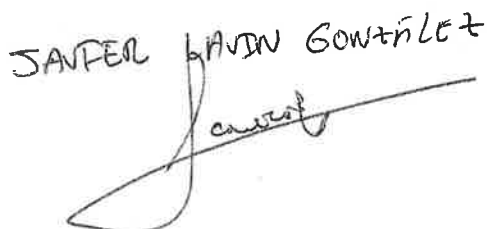 JAVIER LAVIN GONZÁLEZ